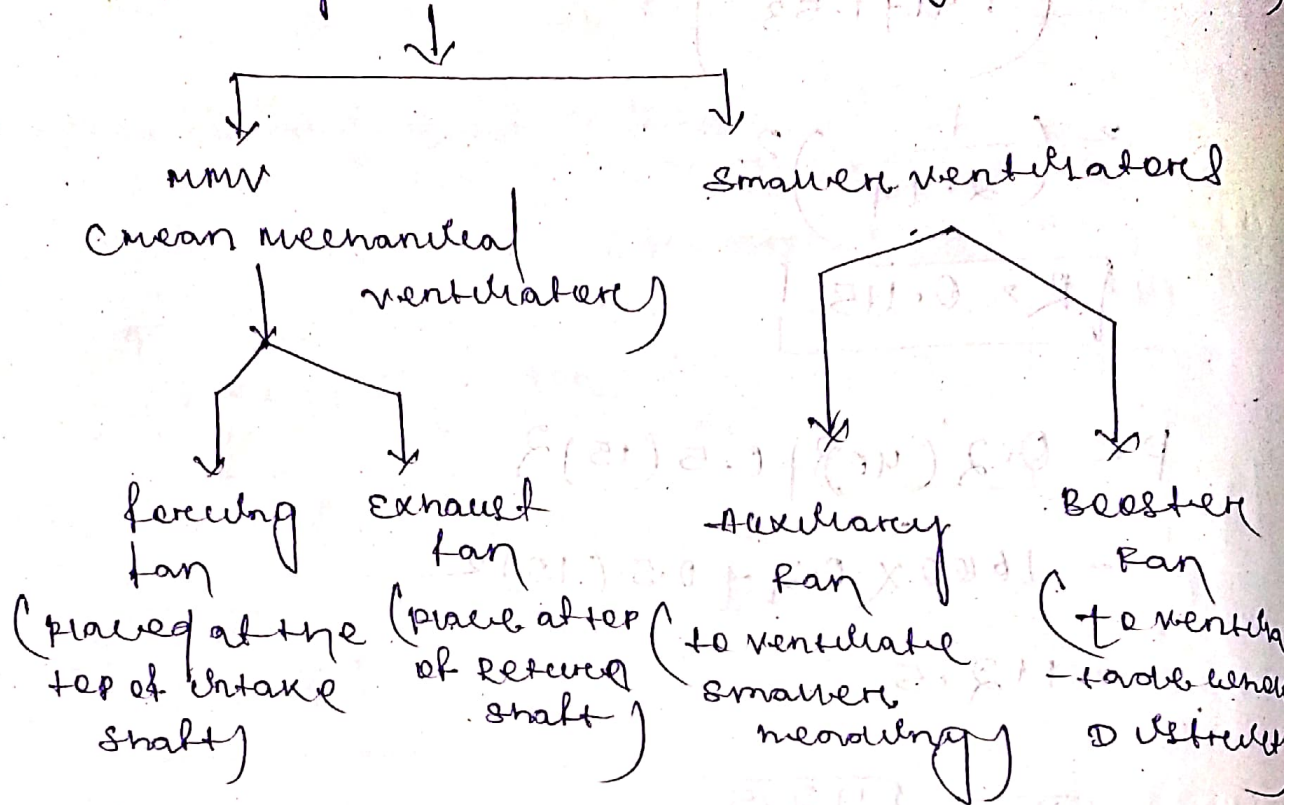 MMV
(mean mechanical
ventilator)
smaller ventilators
forcing
fan
(placed at the
top of intake
shaft)
Exhaust
fan
(place at top
of Return
shaft)
Auxiliary
Fan
(to ventilate
smaller
heading)
Booster
Fan
(to ventila
District